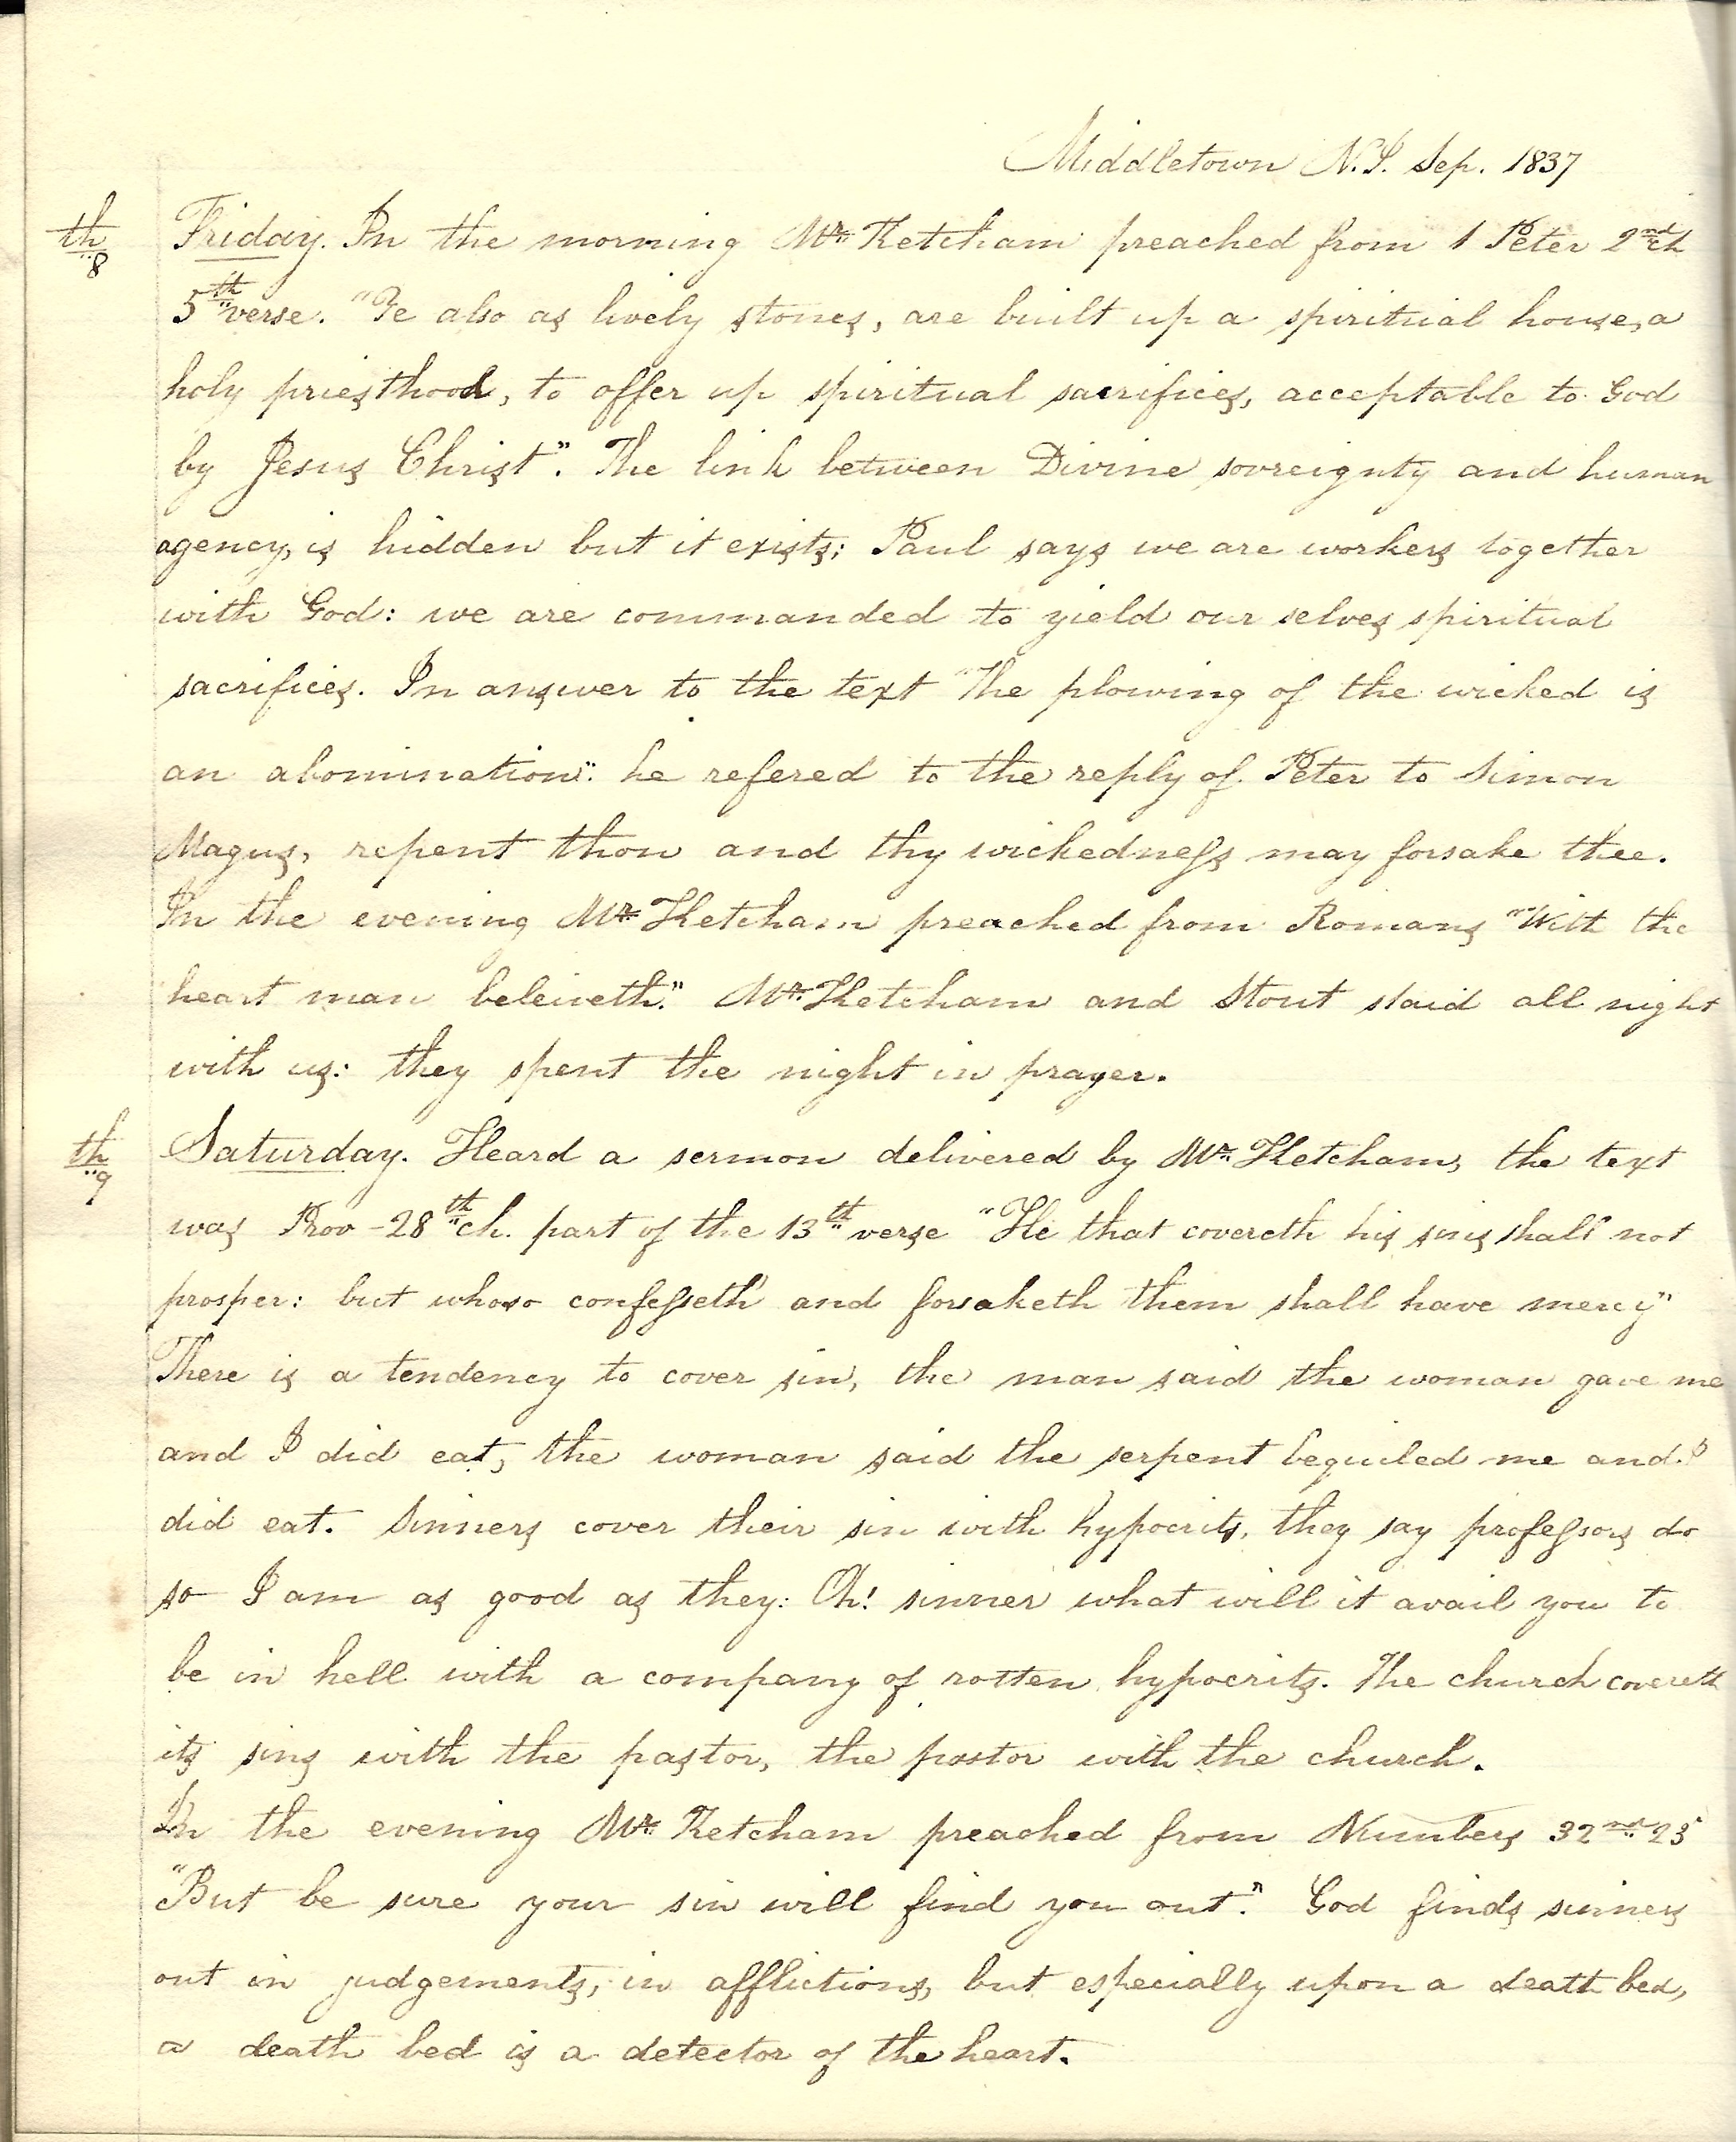 Middletown N.J. Sep. 1837
8th Friday. In the morning Mr. Ketcham preached from 1 Peter 2nd ch
5th verse. "Ye also as lively stones, are built up a spiritual house, a
holy priesthood, to offer up spiritual sacrifices, acceptable to God
by Jesus Christ". The link between Divine sovreignty and human
agency, is hidden but it exists; Paul says we are workers together
with God: we are commanded to yield our selves spiritual
sacrifices. In answer to the text "The plowing of the wicked is
an abomination": he refered to the reply of Peter to Simon
Magus, repent thou and thy wickedness may forsake thee.
In the evening Mr. Ketcham preached from Romans "With the
heart man beleiveth." Mr. Ketcham and Stout staid all night
with us: they spent the night in prayer.
9th Saturday. Heard a sermon delivered by Mr. Ketcham, the text
was Prov - 28th ch. part of the 13th verse "He that covereth his sins shall not
prosper: but whoso confesseth and forsaketh them shall have mercy"
There is a tendency to cover sin, the man said the woman gave me
and I did eat, the woman said the serpent beguiled me and I
did eat. Sinners cover their sin with hypocrits, they say professors do
so I am as good as they: Oh! sinner what will it avail you to
be in hell with a company of rotten hypocrits. The church covereth
its sins with the pastor, the pastor with the church.
In the evening Mr. Ketcham preached from Numbers 32nd 23
"But be sure your sin will find you out." God finds sinners
out in judgements, in afflictions, but especially upon a death bed,
a death bed is a detector of the heart.